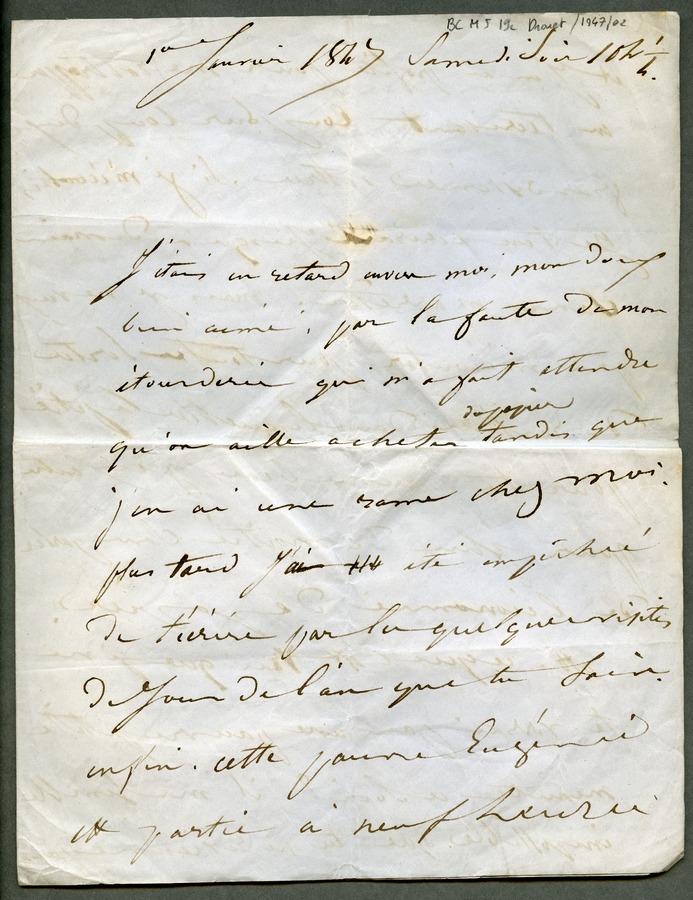 BC MS 19c Drouet/1847/02
1er Janvier 1847 Samedi soir 10h ¼
J'étais en retard envers moi, mon doux
bien aimé, par la faute de mon
étourderie qui m'a fait attendre
qu'on aille acheter du papier tandis que
j'en ai une rame chez moi.
plus tard j'ai été empêchée
de t'écrire par les quelques visites
de Jour de l'an que tu sais.
enfin cette pauvre Eugénie
est partie à neuf heures